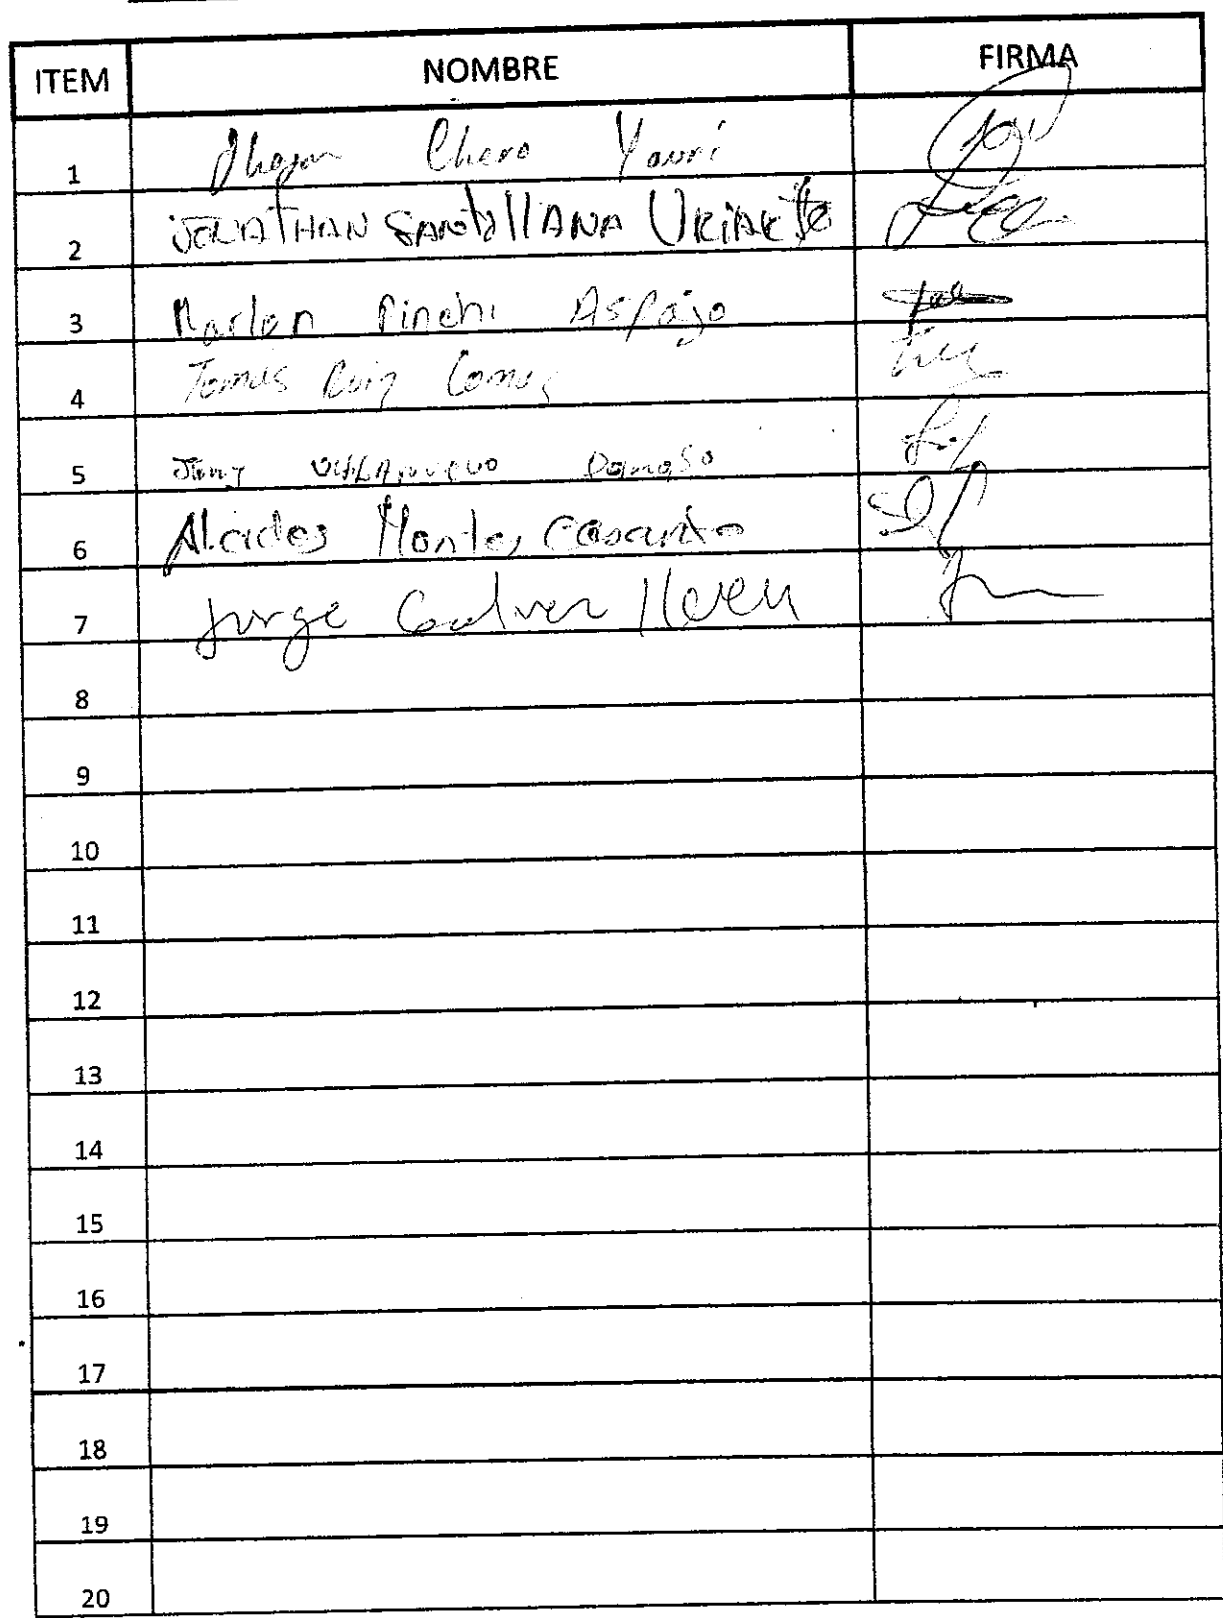 ITEM NOMBRE FIRMA
1 Jhozan Chero Yauri
2 JONATHAN SANTILLANA URIARTE
3 Marlon Pinchi Aspajo
4 Tomas Ruiz
5 Jimy Villanueva Damaso
6 Alcides Montes
7 Jorge Galvez
8
9
10
11
12
13
14
15
16
17
18
19
20